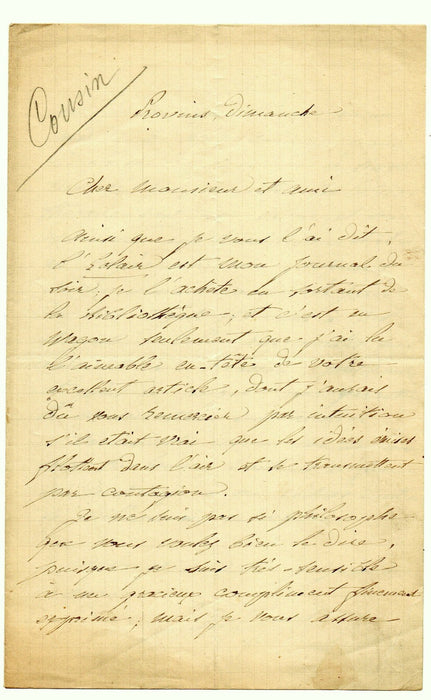 Cousin
Provins, dimanche
Cher Monsieur et ami
Ainsi que je vous l'ai dit,
l'Eclair est mon journal du
soir; je l'achète en sortant de
la bibliothèque; et c'est en
wagon seulement que j'ai lu
l'aimable en-tête de votre
excellent article, dont j'aurais
dû vous remercier par intuition
s'il était vrai que les idées
flottent dans l'air et se transmettent
par contagion.
Je ne suis pas si philosophe
que vous voulez bien le dire,
puisque je suis très-sensible
à un gracieux compliment finement
exprimé; mais je vous assure